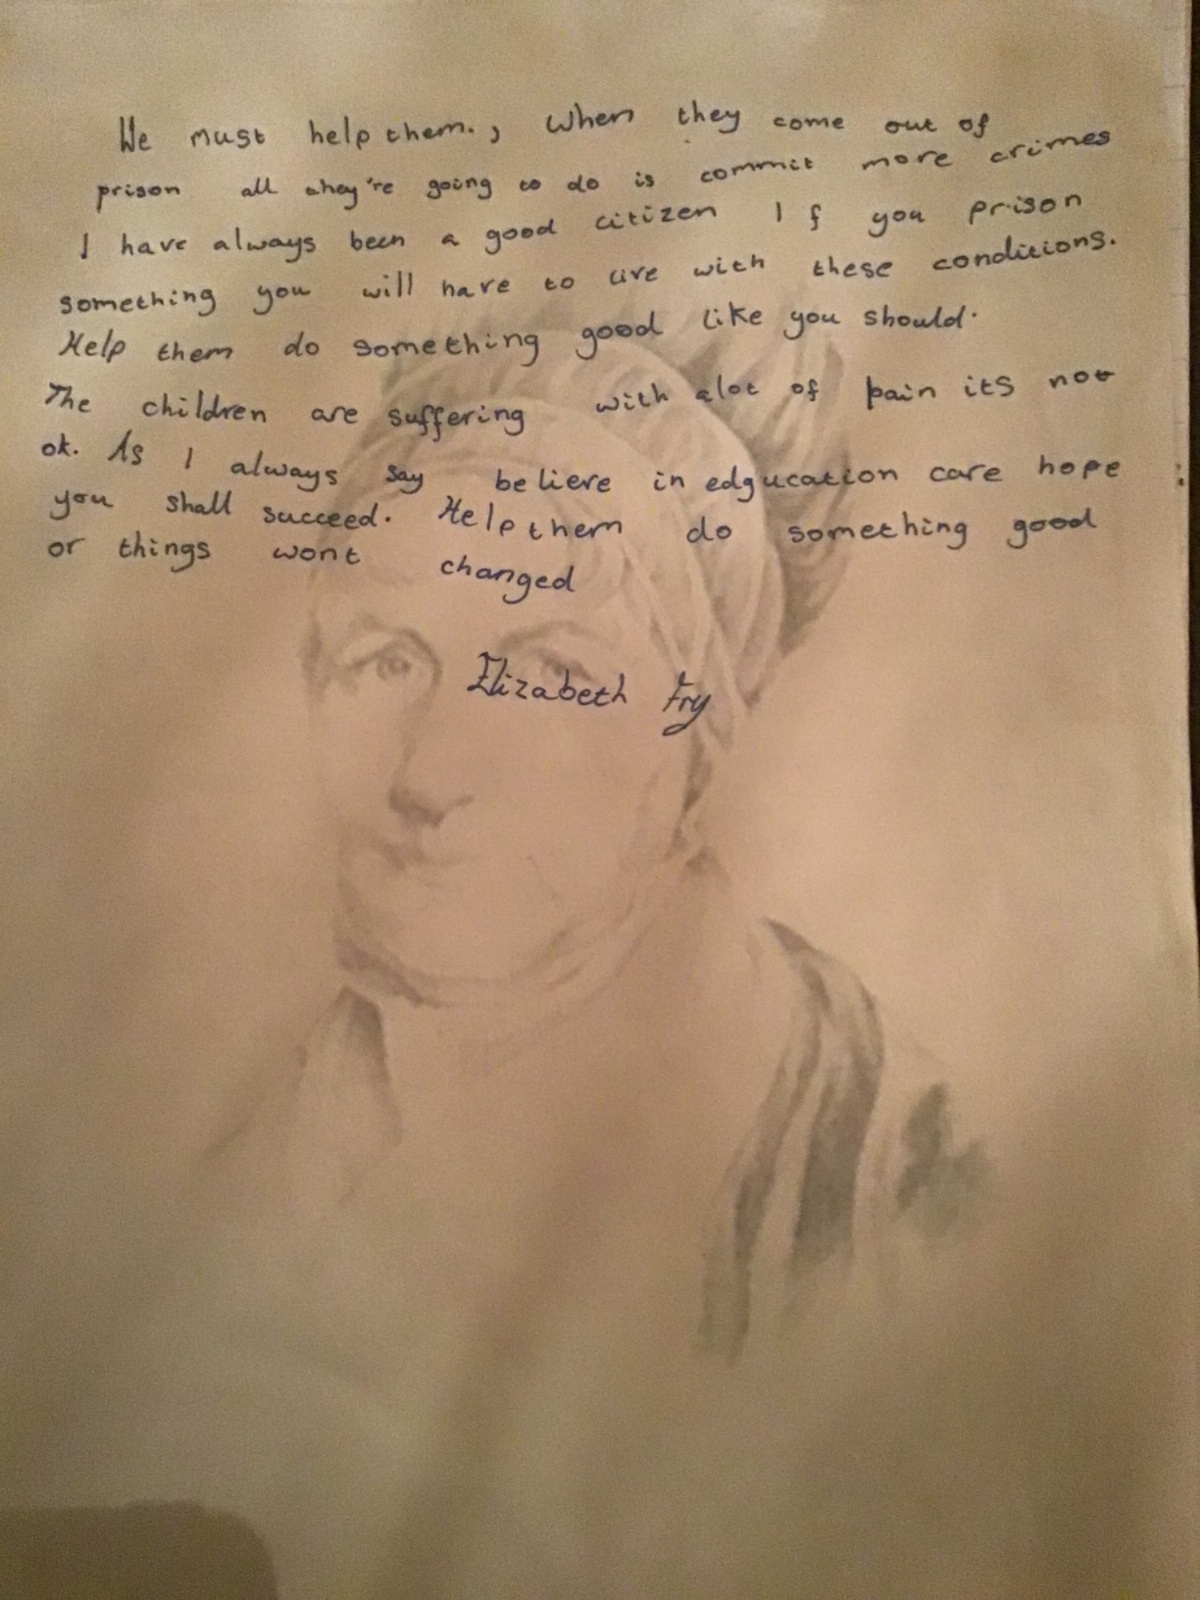 We must help them., When they come out of
prison all they're going to do is commit more crimes
I have always been a good citizen If you prison
something you will have to live with these conditions.
Help them do something good like you should.
The children are suffering with alot of pain its not
ok. As I always say believe in edgucation care hope
you shall succeed. Help them do something good
or things wont changed
Elizabeth Fry